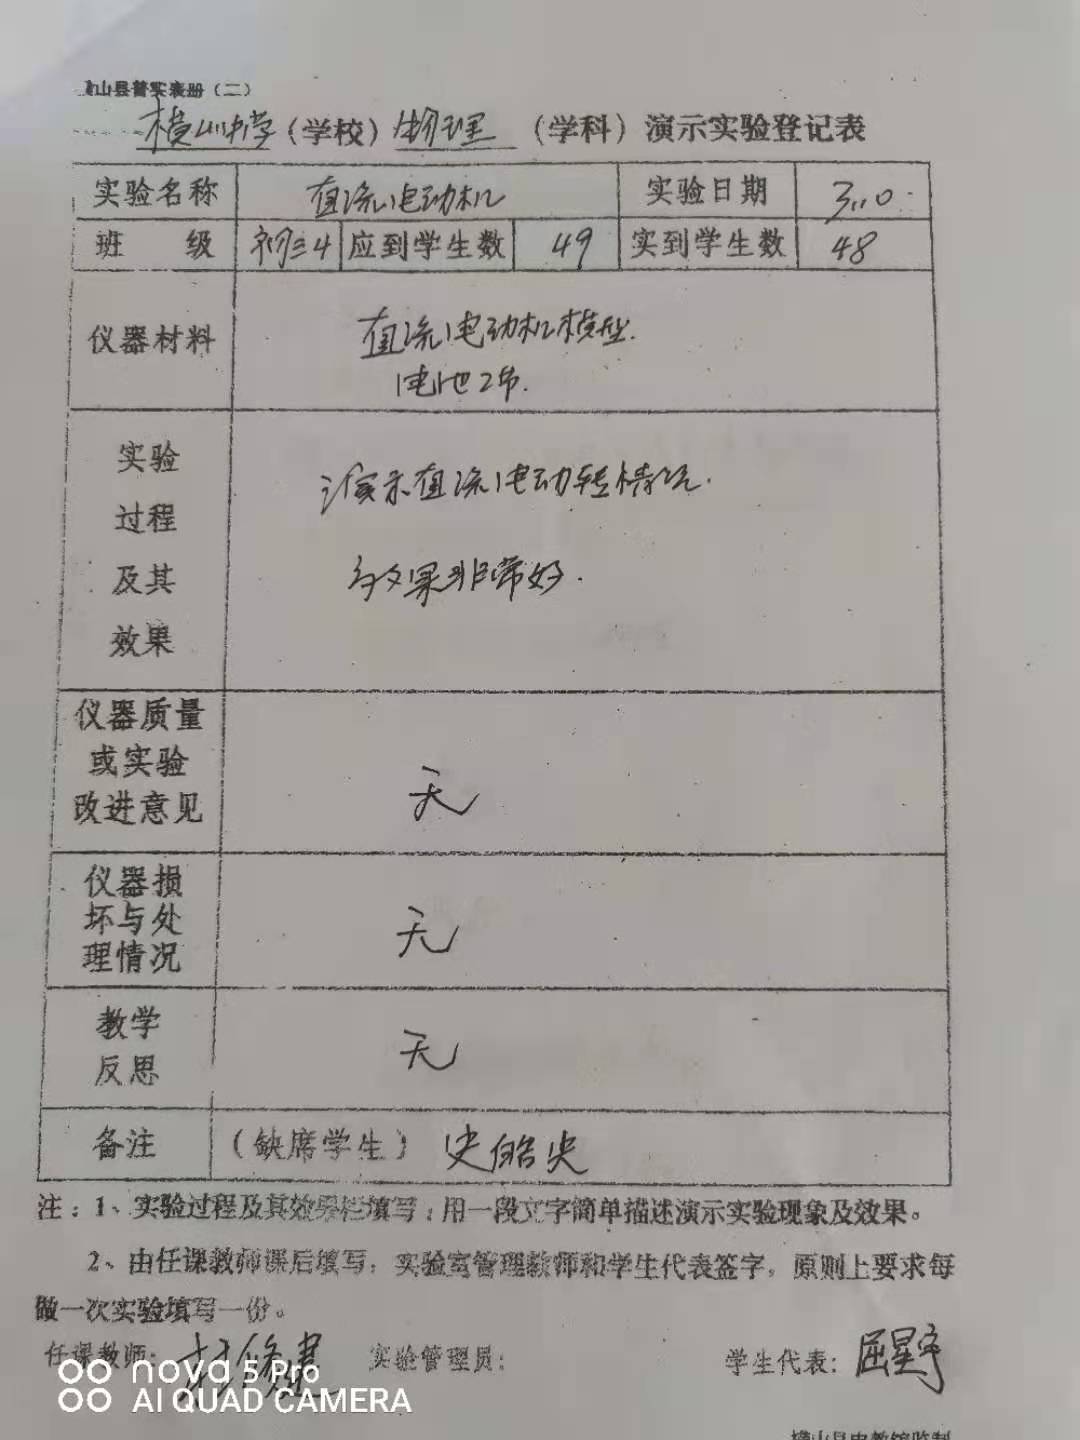 山县普实表册（二）
横山中学（学校）物理（学科）演示实验登记表
实验名称 直流电动机 实验日期 3.10.
班级 初三4 应到学生数 49 实到学生数 48
仪器材料 直流电动机模型.
电池2节.
实验
过程
及其
效果
演示直流电动转情况.
效果非常好.
仪器质量
或实验
改进意见
无
仪器损
坏与处
理情况
无
教学
反思
无
备注 （缺席学生）史皓
注：1、实验过程及其效果栏填写：用一段文字简单描述演示实验现象及效果。
2、由任课教师课后填写，实验室管理教师和学生代表签字，原则上要求每
做一次实验填写一份。
任课教师： 实验管理员： 学生代表：屈星宇
横山县电教馆监制
nova 5 Pro
AI QUAD CAMERA